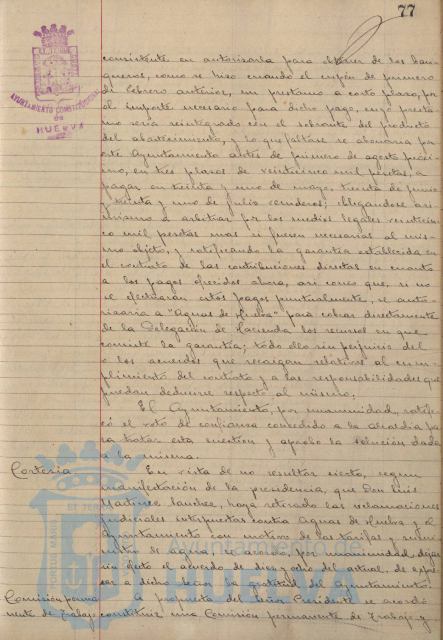 77
AYUNTAMIENTO CONSTITUCIONAL
de
HUELVA
consistente en autorizarla para obtener de los ban-
queros, como se hizo cuando el cupón de primero
de febrero anterior, un prestamo a corto plazo, por
el importe necesario para dicho pago, cuyo presta-
mo sería reintegrado con el sobrante del producto
del abastecimiento, y lo que faltase se abonaria por
este Ayuntamiento antes de primero de agosto próxi-
mo, en tres plazos de veinticinco mil pesetas, a
pagar en treinta y uno de mayo, treinta de junio
y treinta y uno de julio venideros; obligandose asi-
mismo a arbitrar por los medios legales veinticin-
co mil pesetas mas si fuesen necesarias al mis-
mo objeto, y ratificando la garantía establecida en
el contrato de las contribuciones directas en cuanto
a los pagos ofrecidos ahora, así como que, si no
se efectuaran estos pagos puntualmente, se auto-
rizaría a "Aguas de Huelva" para cobrar directamente
de la Delegación de Hacienda los recursos en que
consiste la garantía; todo ello sin perjuicio del
o los acuerdos que recaigan relativos al cum-
plimiento del contrato y a las responsabilidades que
puedan deducirse respecto al mismo.
El Ayuntamiento, por unanimidad, ratifi-
có el voto de confianza concedido a la Alcaldía pa-
ra tratar esta cuestion y aprobó la solución dada
a la misma.
Cortesia
En vista de no resultar cierto, segun
manifestación de la presidencia, que Don Luis
Martinez Sanchez, haya retirado las reclamaciones
judiciales interpuestas contra Aguas de Huelva y el
Ayuntamiento con motivo de las tarifas y sumi-
nistro de aguas, se acordó, por unanimidad, dejar
sin efecto el acuerdo de diez y ocho del actual, de expre-
sar a dicho Señor la gratitud del Ayuntamiento.
Comisión perma-
nente de Trabajo
A propuesta del Señor Presidente se acordó
constituir una Comisión permanente de Trabajo y
PORTUS MARIS ET TERRÆ
Ayuntamiento de
HUELVA